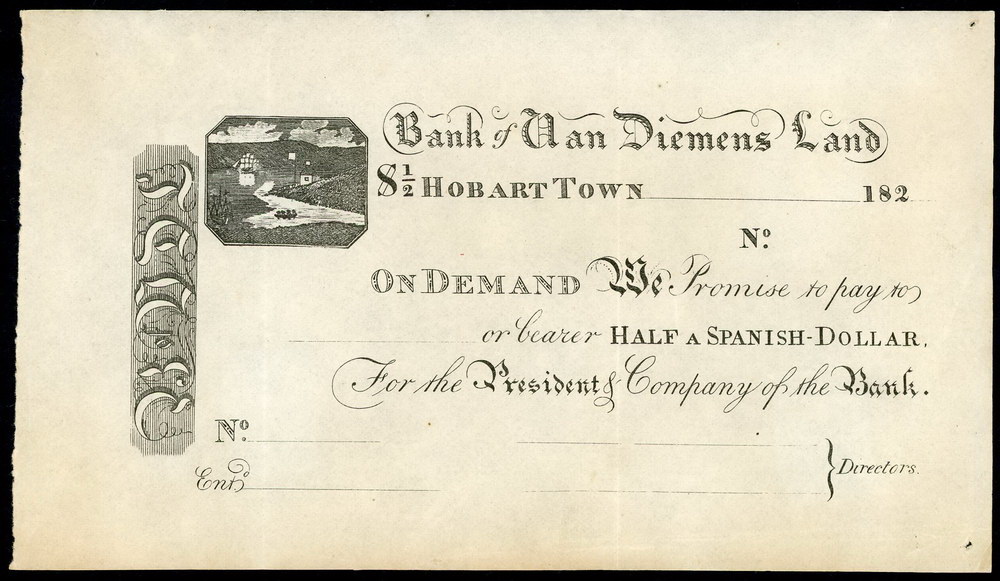 Bank of Van Diemens Land
$½ HOBART TOWN 182
Nº.
ON DEMAND We Promise to pay to
or bearer HALF A SPANISH-DOLLAR.
For the President & Company of the Bank.
Nº.
Entd
Directors.